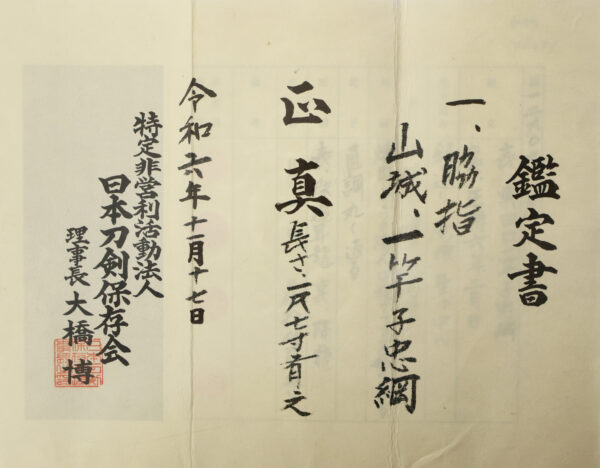 鑑定書
一、脇指
山城、一竿子忠綱
正真 長さ、一尺七寸有之
令和六年十一月十七日
特定非営利活動法人
日本刀剣保存会
理事長 大橋博